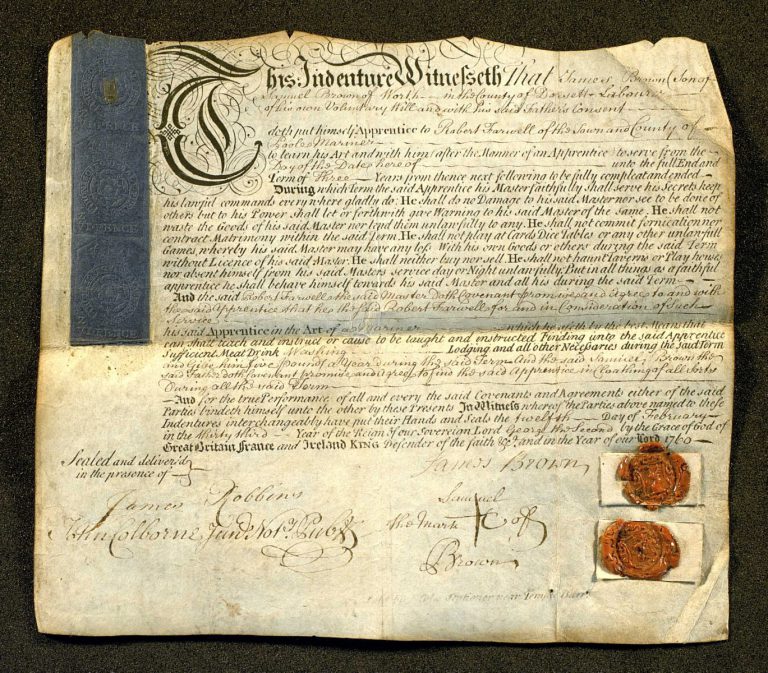 This Indenture Witnesseth That James Brown Son of
Samuel Brown of Worth in the County of Dorsett Labourer
of his own Voluntary Will and with his said Fathers Consent
doth put himself Apprentice to Robert Farwell of the Town and County of
Poole Mariner
to learn his Art and with him (after the Manner of an Apprentice) to serve from the
Day of the Date hereof unto the full End and
Term of Three Years from thence next following to be fully compleat and ended
During which Term the said Apprentice his Master faithfully shall serve his secrets keep
his lawful commands every where gladly do: He shall do no Damage to his said Master nor see to be done of
others but to his Power shall let or forthwith give Warning to his said Master of the Same. He shall not
waste the Goods of his said Master nor lend them unlawfully to any. He shall not commit fornication nor
contract Matrimony within the said Term. He shall not play at Cards Dice Tables or any other unlawfull
Games whereby his said Master may have any loss With his own Goods or others during the said Term
without Licence of his said Master. He shall neither buy nor sell. He shall not haunt Taverns or Play houses
nor absent himself from his said Masters service day or Night unlawfully. But in all things as a faithful
apprentice he shall behave himself towards his said Master and all his during the said Term
And the said Robert Farwell the said Master Doth Covenant promise and agree to and with
the said Apprentice that he the said Robert Farwell for and in Consideration of Such
Service
his said Apprentice in the Art of a Mariner which he useth by the best Means that
can shall teach and instruct or cause to be taught and instructed Finding unto the said Apprentice
Sufficient Meat Drink Washing Lodging and all other Necessaries during the said Term
and Give him five pound a Year during the said Term And the said Samuel Brown the
said Father doth Covenant promise and agree to find the said Apprentice in Cloathing of all Sorts
During all the said Term
And for the true Performance of all and every the said Covenants and Agreements either of the said
Parties bindeth himself unto the other by these Presents In Witness whereof the Parties above named to these
Indentures interchangeably have put their Hands and Seals the twelfth Day of February
in the thirty third Year of the Reign of our Sovereign Lord George the Second by the Grace of God of
Great Britain France and Ireland KING Defender of the faith &c. and in the Year of our Lord 1760
Sealed and deliver'd
in the presence of
James Brown
James Robbins
John Colborne Junr Not. Pub.
Samuel
the Mark of
Brown